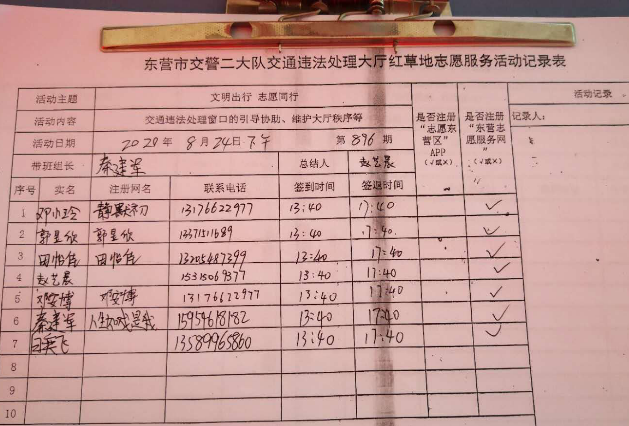 东营市交警二大队交通违法处理大厅红草地志愿服务活动记录表
活动主题 文明出行 志愿同行
活动内容 交通违法处理窗口的引导协助、维护大厅秩序等
活动日期 2020年 8月24日下午 第896期
带班组长 秦建军 总结人 赵艺晨
是否注册“志愿东营区”APP（√或×）
是否注册“东营志愿服务网”（√或×）
活动记录
记录人：
序号 实名 注册网名 联系电话 签到时间 签退时间
1 邓小玲 静默初 13176622977 13:40 17:40 ✓
2 郭昱欣 郭昱欣 13371511689 13:40 17:40 ✓
3 田怡佳 田怡佳 13205687399 13:40 17:40 ✓
4 赵艺晨 15315069377 13:40 17:40 ✓
5 邓安博 邓安博 13176622977 13:40 17:40 ✓
6 秦建军 15954618182 13:40 17:40 ✓
7 飞 13589965860 13:40 17:40 ✓
8
9
10